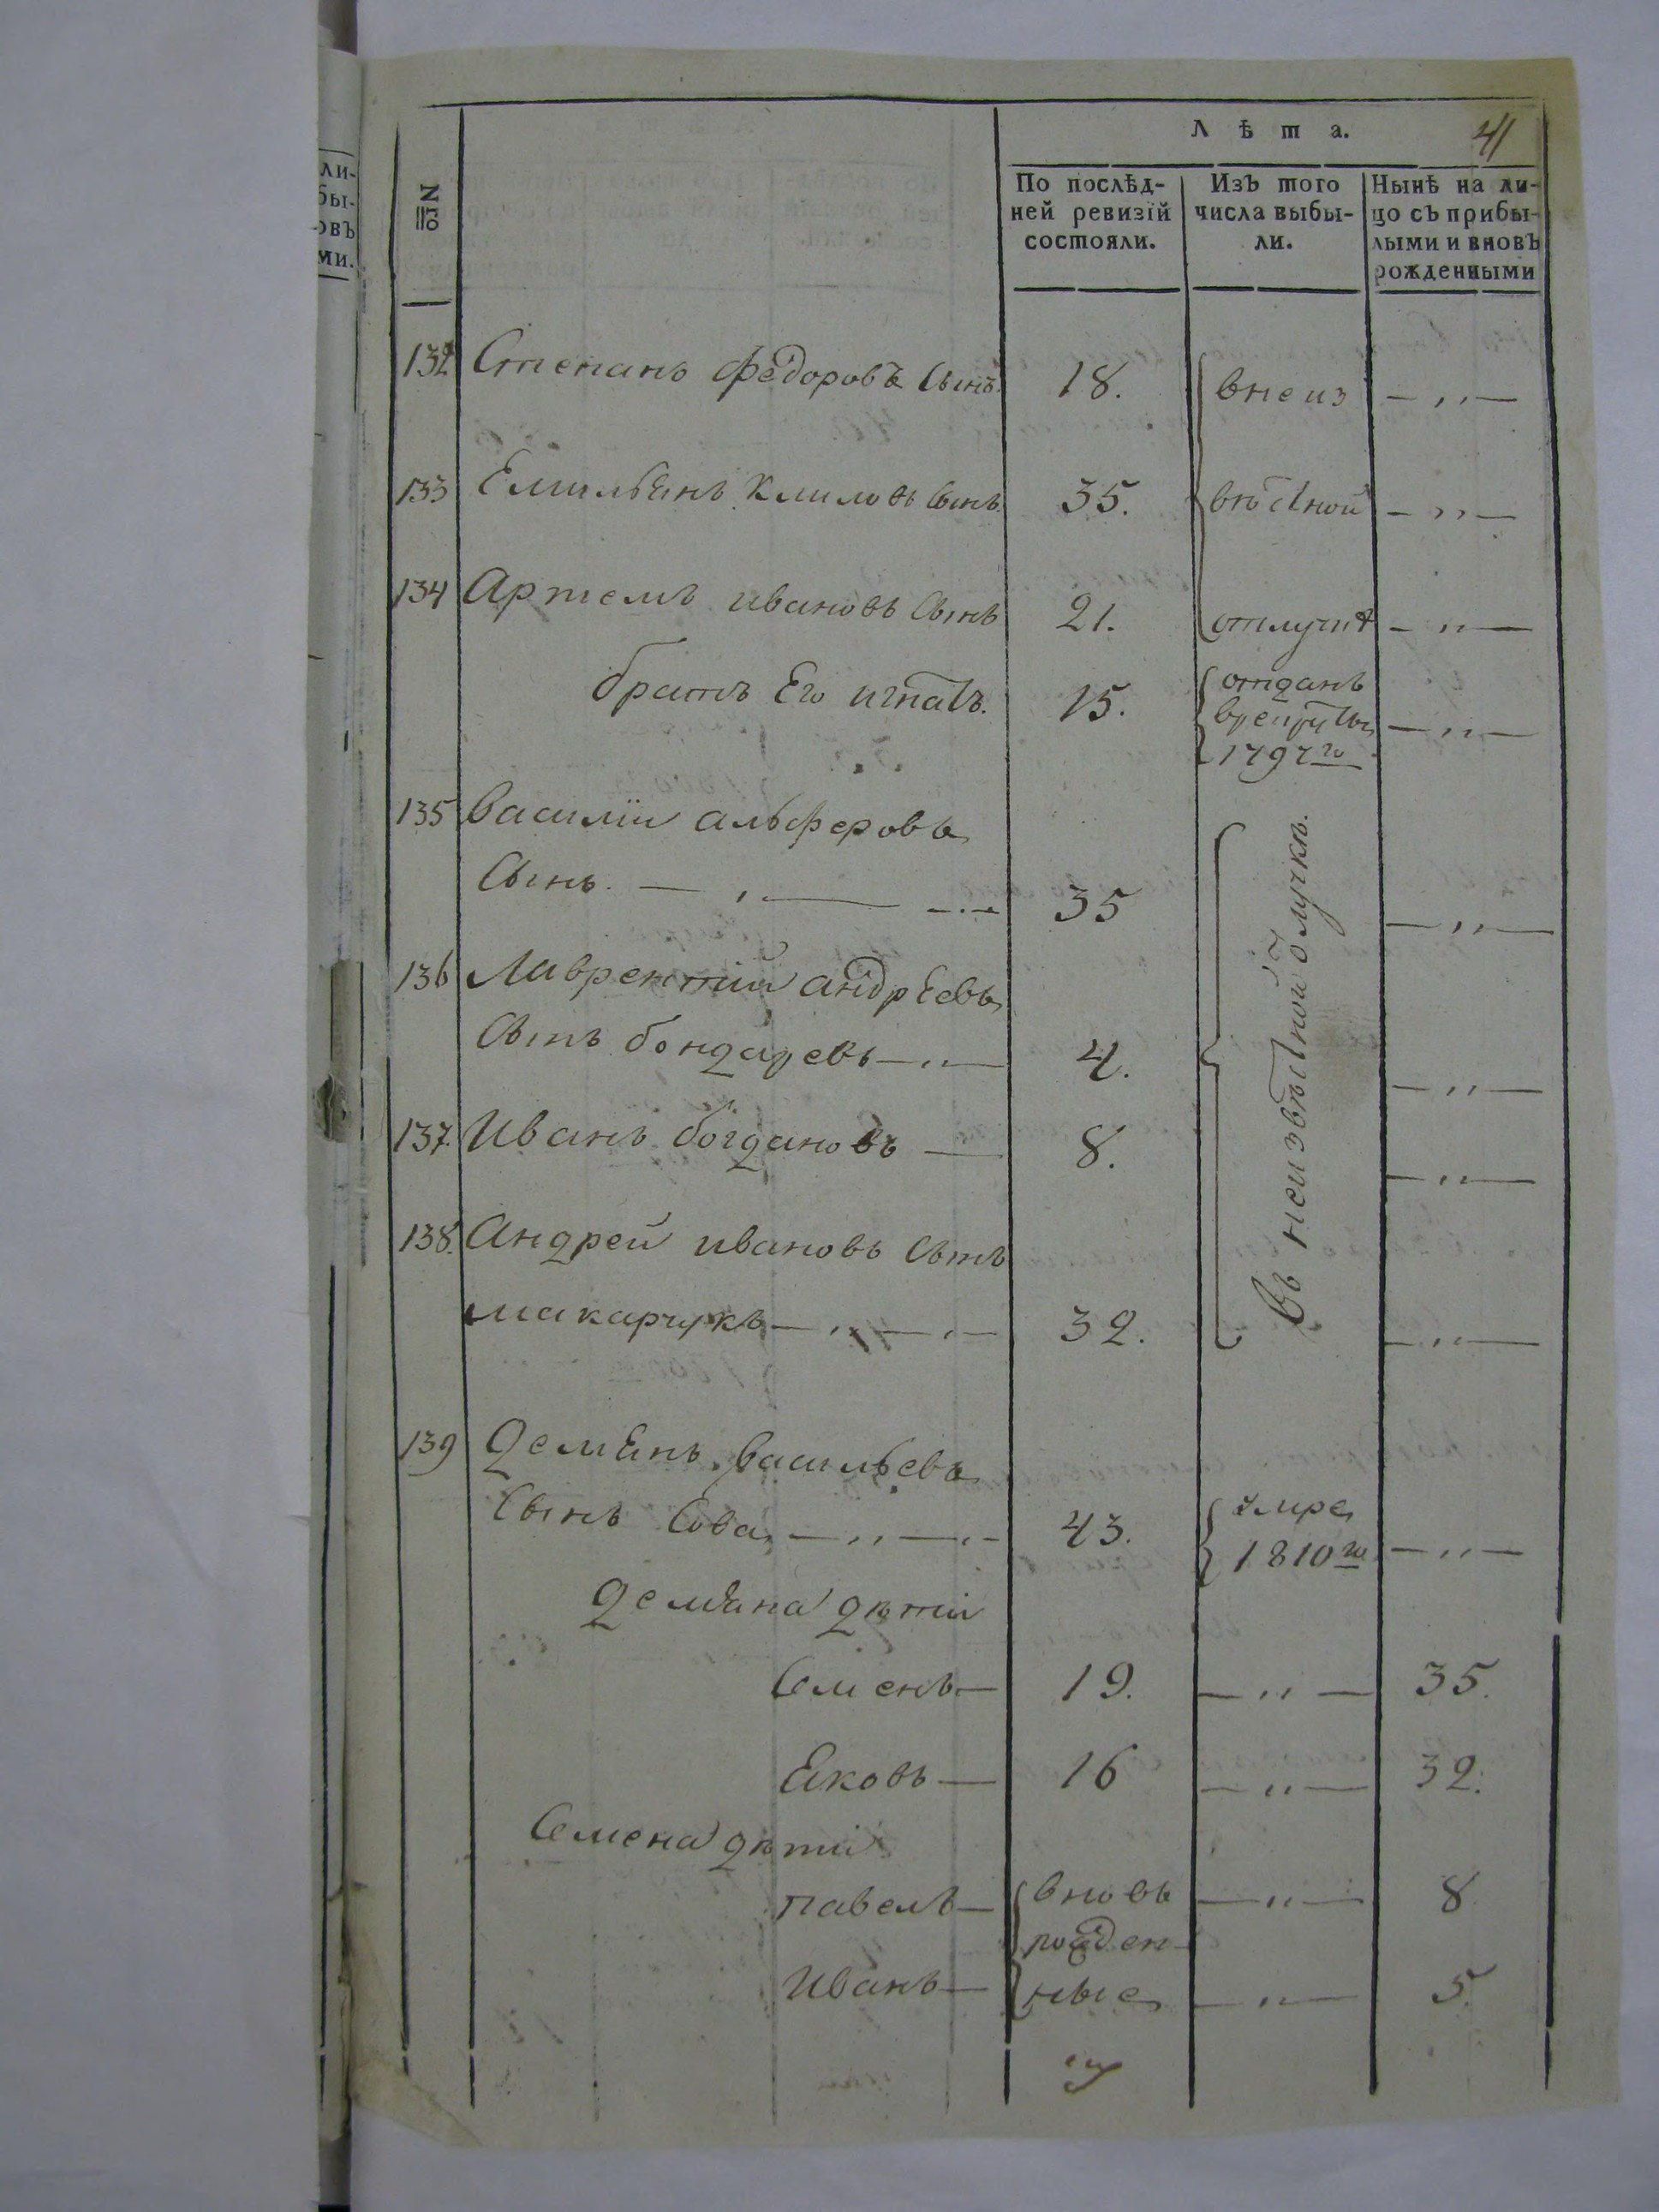 Лѣта.
41
№
По послѣд-
ней ревизїй
состояли.
Изъ того
числа выбы-
ли.
Нынѣ на ли-
цо съ прибы-
лыми и вновь
рожденными
ли-
бы-
овъ
ми.
132 Степанъ федоровъ сынъ. 18. вне из — „ —
133 Емильянъ Климовъ сынъ. 35. вѣстной — „ —
134 Артемъ ивановъ сынъ 21. отлучкѣ — „ —
братъ Его игнатъ. 15. отданъ
врекруты — „ —
1797го
135 Василіи алферовъ
сынъ. — „ — 35 — „ —
136 Лаврентий андрѣевъ
сынъ бондаревъ — „ — 4. — „ —
137. Иванъ богдановъ — 8. — „ —
138. Андрей ивановъ сынъ
макарчукъ — „ — „ — 32. — „ —
Въ неизвѣстной отлучкѣ.
139 Демянъ васильевъ
сынъ Сова — „ — „ — 43. умре
1810го — „ —
Демяна дѣти
Семенъ — 19. — „ — 35.
Яковъ — 16 — „ — 32.
Семена дѣти
павелъ — вновь — „ — 8
рожден
Иванъ — ные — „ — 5.